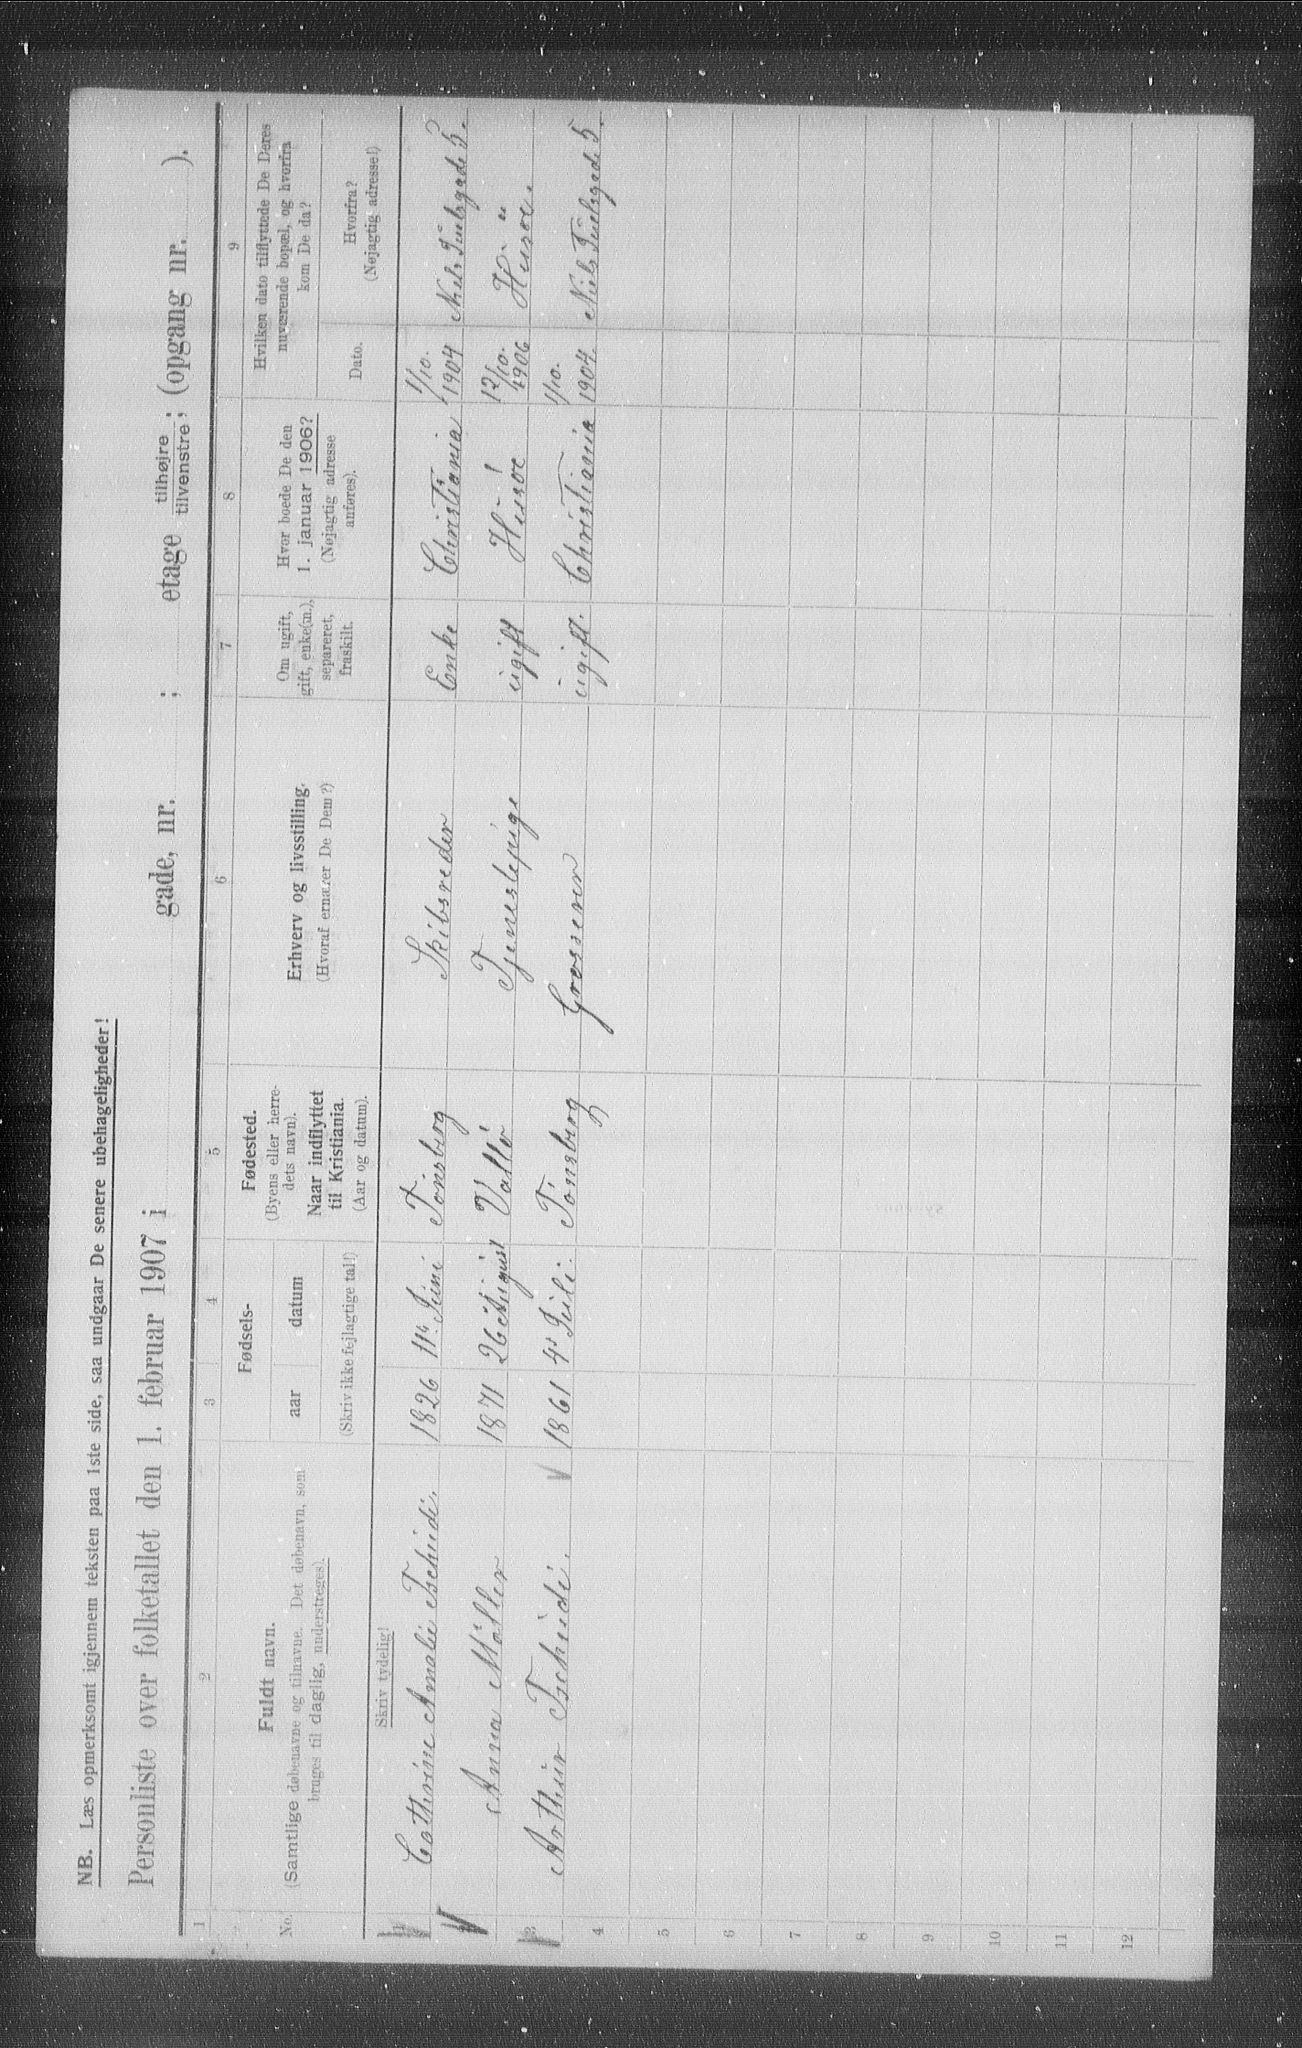 NB. Læs opmerksomt igjennem teksten paa 1ste side, saa undgaar De senere ubehageligheder!
Personliste over folketallet den 1. februar 1907 i gade, nr. ; etage tilhøjre tilvenstre; (opgang nr. ).
1 2 3 4 5 6 7 8 9
No. Fuldt navn. (Samtlige døbenavne og tilnavne. Det døbenavn, som bruges til daglig, understreges).
Fødsels-
aar datum
(Skriv ikke fejlagtige tal!)
Fødested. (Byens eller herredets navn). Naar indflyttet til Kristiania. (Aar og datum).
Erhverv og livsstilling. (Hvoraf ernærer De Dem?)
Om ugift, gift, enke(m.), separeret, fraskilt.
Hvor boede De den 1. januar 1906? (Nøjagtig adresse anføres).
Hvilken dato tilflyttede De Deres nuværende bopæl, og hvorfra kom De da?
Dato. Hvorfra? (Nøjagtig adresse!)
Skriv tydelig!
1 Cathrine Amalie Tschudi. 1826 11. Juni Tönsberg Skibsreder Enke Christiania 1/10. 1904 Niels Juelsgade 5.
2 Anna Möller 1871 26 August Vallö Tjenestepige ugift Husöe 12/10. 1906 Husöe.
3 Arthur Tschudi. 1861 4. Juli. Tönsberg Grosserer ugift. Christiania 1/10. 1904. Niels Juelsgade 5.
4
5
6
7
8
9
10
11
12